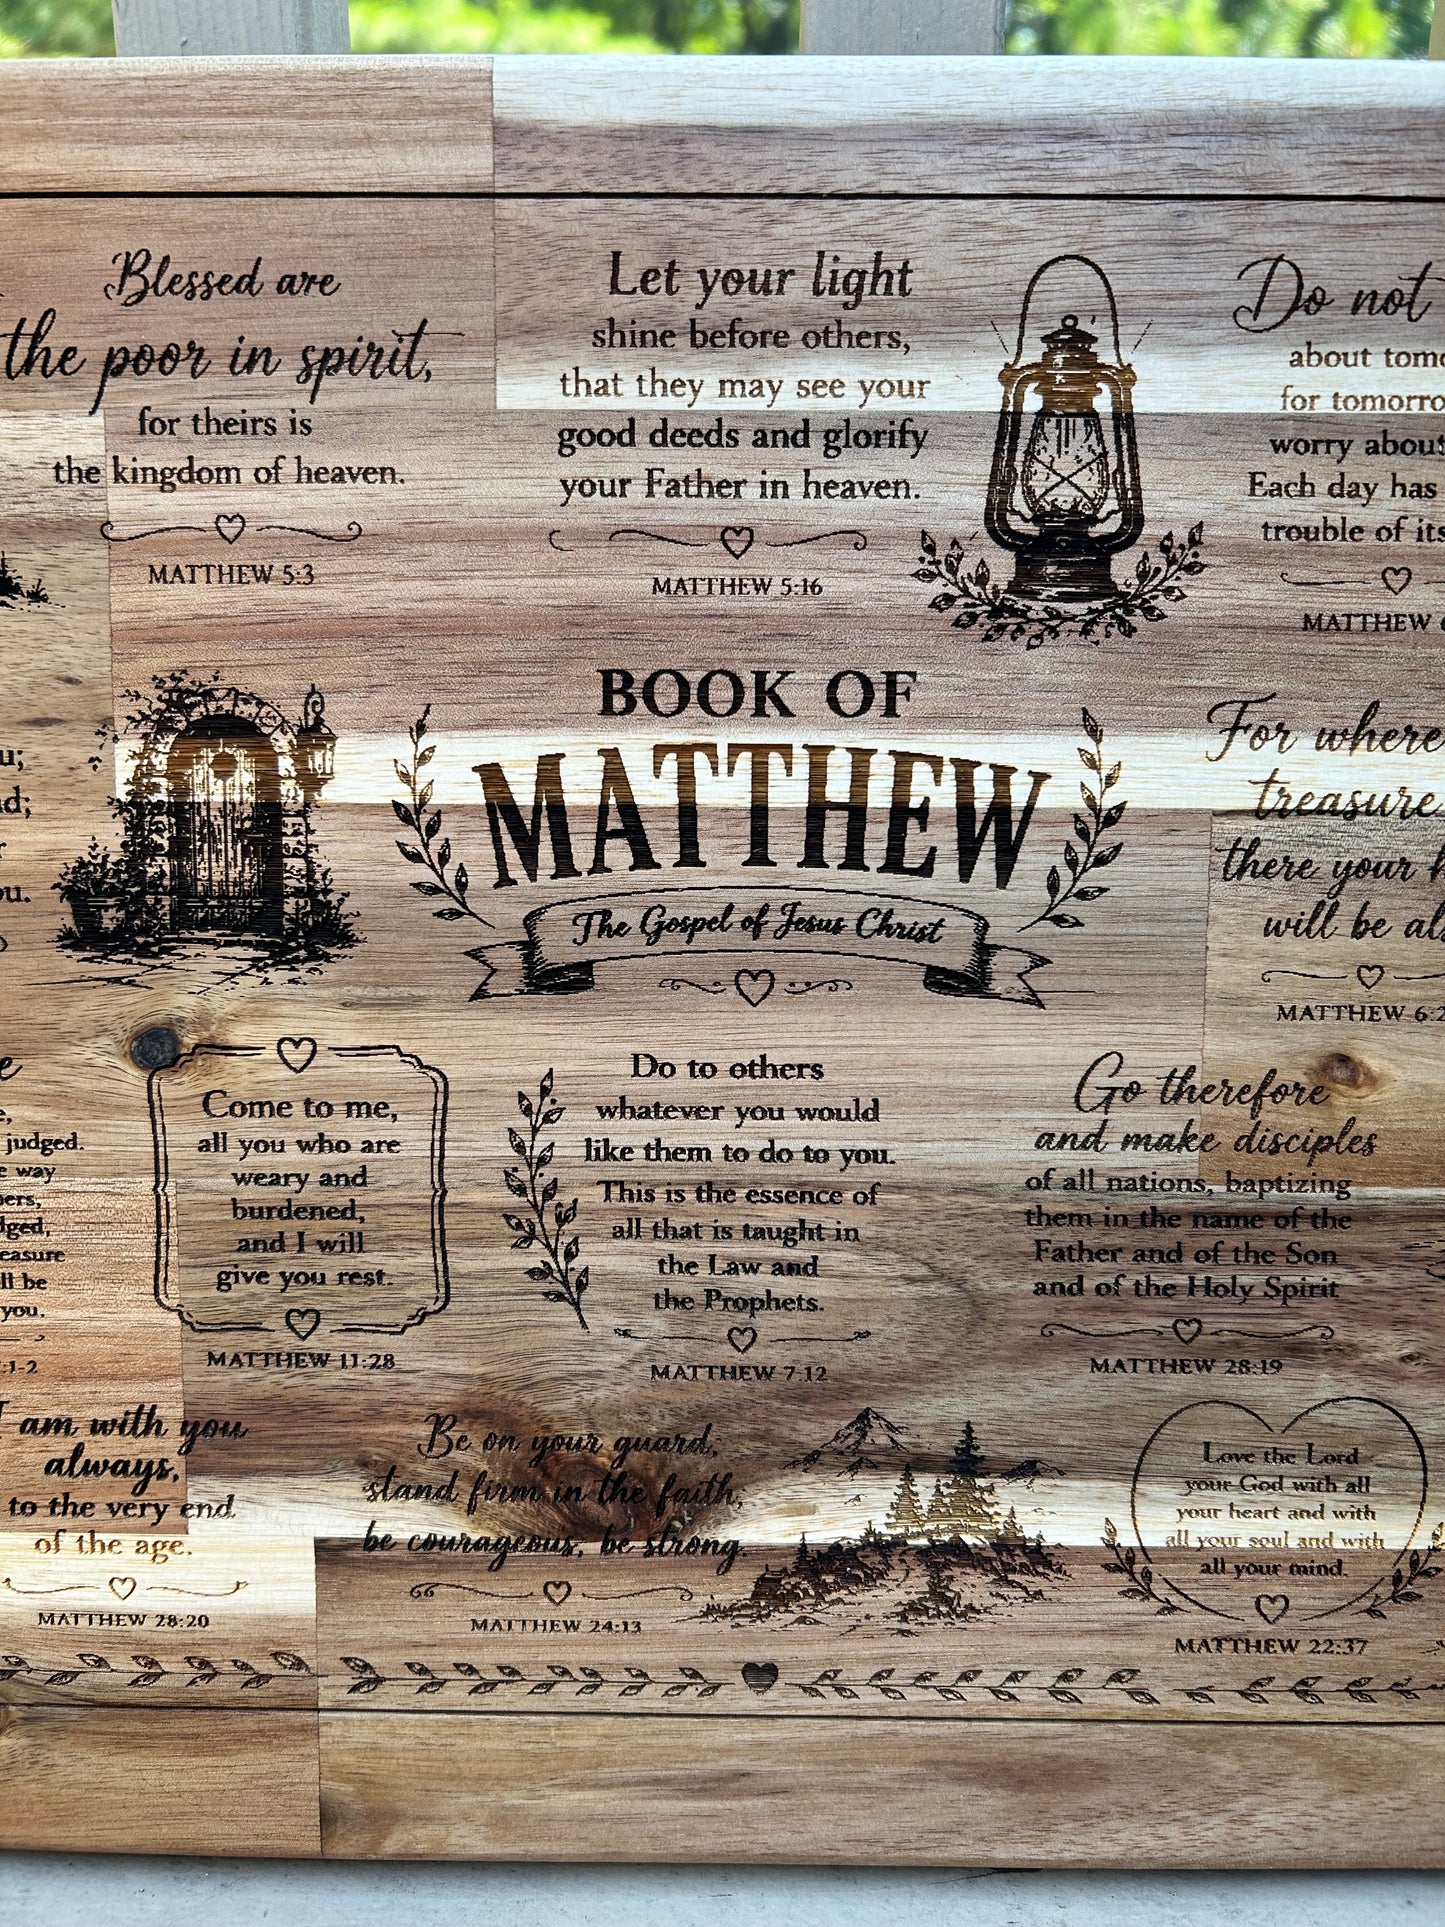 Blessed are
the poor in spirit,
for theirs is
the kingdom of heaven.
MATTHEW 5:3
Let your light
shine before others,
that they may see your
good deeds and glorify
your Father in heaven.
MATTHEW 5:16
Do not
about
for
worry
Each day has
trouble of its
MATTHEW
BOOK OF
MATTHEW
The Gospel of Jesus Christ
For where
treasure
there your
will be
MATTHEW 6:2
judged.
way
be
you.
:1-2
Come to me,
all you who are
weary and
burdened,
and I will
give you rest.
MATTHEW 11:28
Do to others
whatever you would
like them to do to you.
This is the essence of
all that is taught in
the Law and
the Prophets.
MATTHEW 7:12
Go therefore
and make disciples
of all nations, baptizing
them in the name of the
Father and of the Son
and of the Holy Spirit
MATTHEW 28:19
I am with you
always,
to the very end
of the age.
MATTHEW 28:20
Be on your guard;
stand firm in the faith;
be courageous, be strong.
MATTHEW 24:13
Love the Lord
your God with all
your heart and with
all your soul and with
all your mind.
MATTHEW 22:37